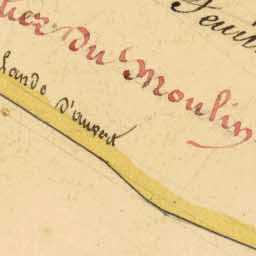 Feuil
tier Du Moulin
lande D'augert